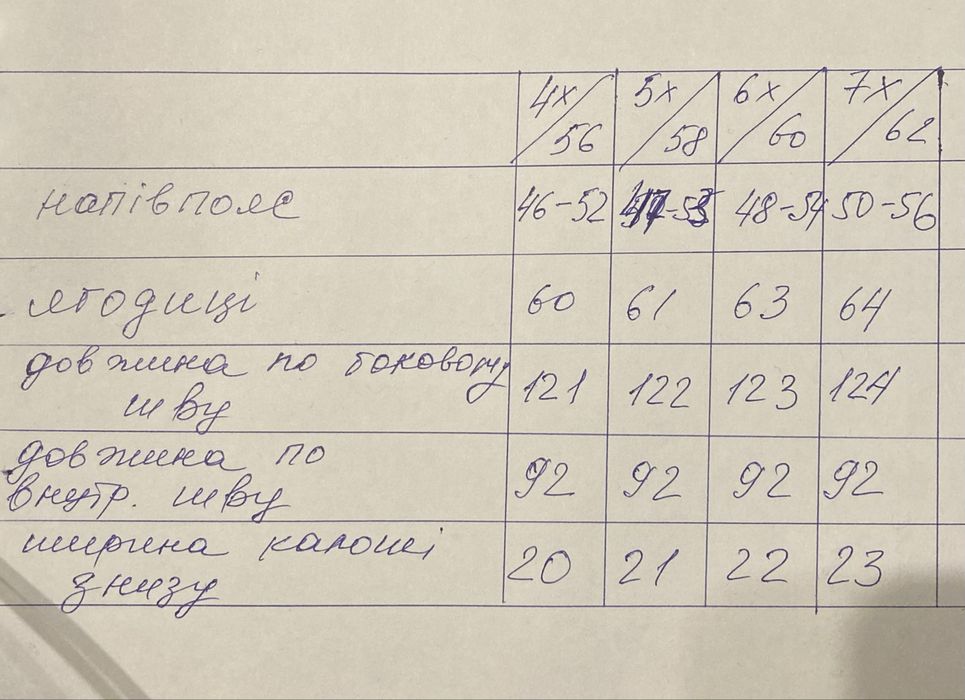 4х/56 5х/58 6х/60 7х/62
напівпояс 46-52 47-53 48-54 50-56
ягодиці 60 61 63 64
довжина по боковому
шву 121 122 123 124
довжина по
внутр. шву 92 92 92 92
ширина калоші
знизу 20 21 22 23